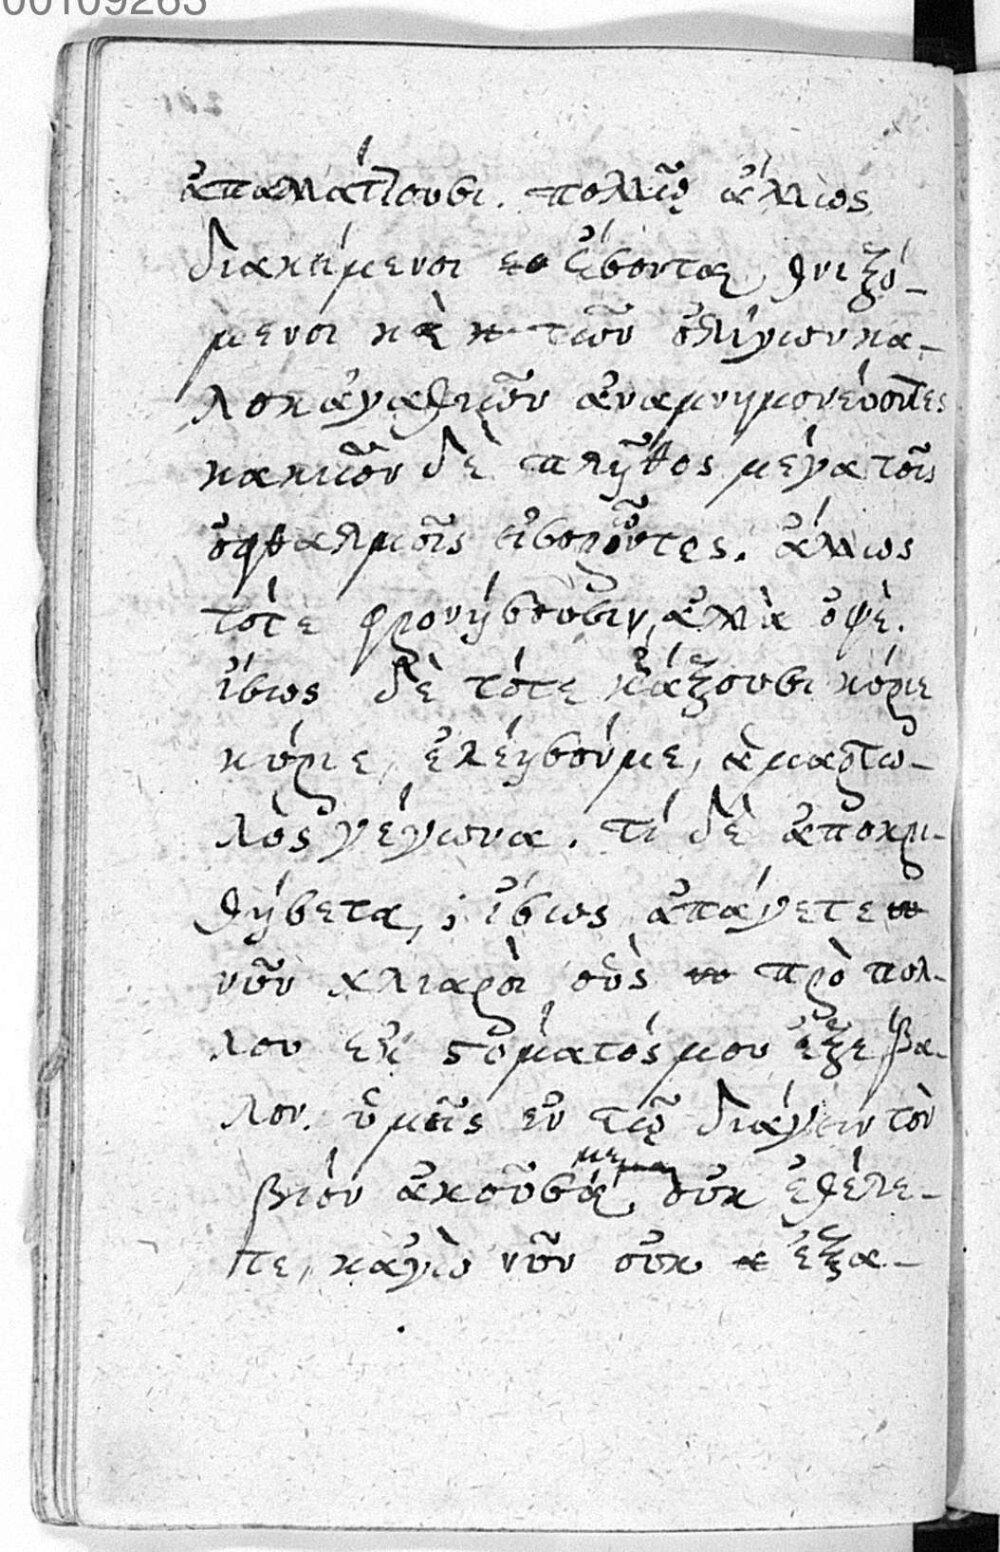 00109263
ἀπαλλάττουσι. πολλῷ ἄλλως
διακήμενοι ἔσονται, θνιξό-
μενοι καὶ τῶν ὀλίγων κα-
λοκἀγαθιῶν ἀναμνημονεύοντες
κακιῶν δὲ πλῆθος μέγα τοῖς
ὀφθαλμοῖς εἰσορῶντες. ἄλλως
τότε φρονήσουσιν, ἀλλὰ ὀψὲ.
ἴσως δὲ τότε κράξουσι κύριε
κύριε, ἐλέησόν με, ἁμαρτω-
λὸς γέγωνα. τί δὲ ἀποκρι-
θήσεται; ἴσως ἀπάγετε
νῦν χλιαροὶ οὓς πρὸ πολ-
λου ἐκ στόματός μου ἐξέβα-
λον. ὑμεῖς ἐν τῷ διάγειν τὸν
βίον ἀκοῦσαί με οὐκ ἐθέλε-
τε, κἀγὼ νῦν οὐκ ἐξα-